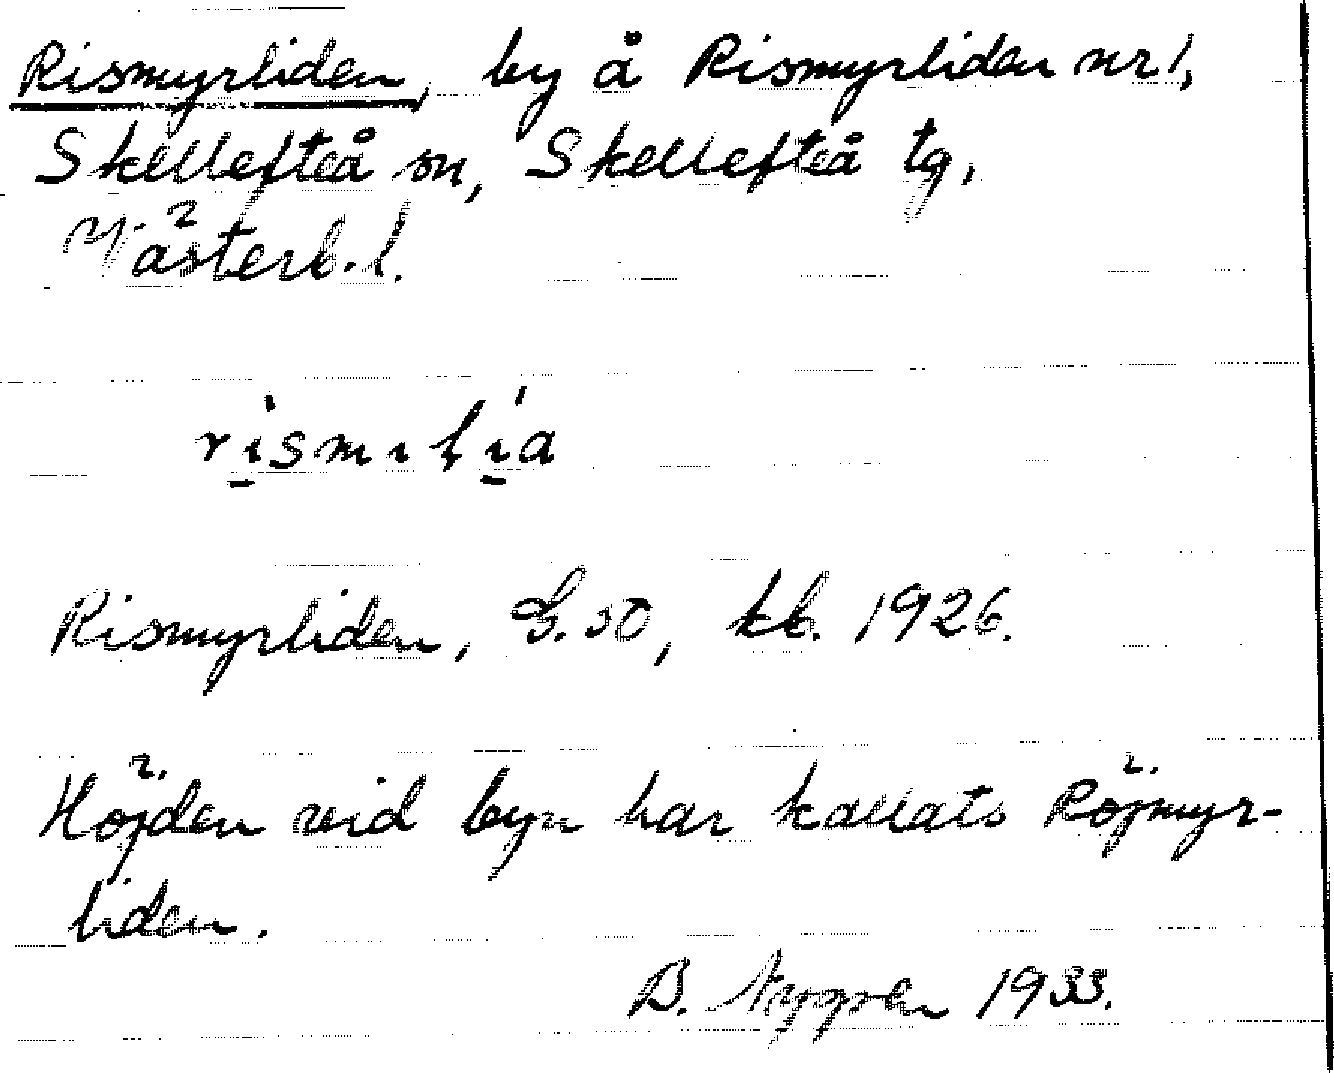 Rismyrliden, by å Rismyrliden nr 1,
Skellefteå sn, Skellefteå tg,
Västerb. l.
rismılia
Rismyrliden, G. 50, kb. 1926.
Höjden vid byn har kallats Röjmyr-
liden.
B. Nygren 1933.